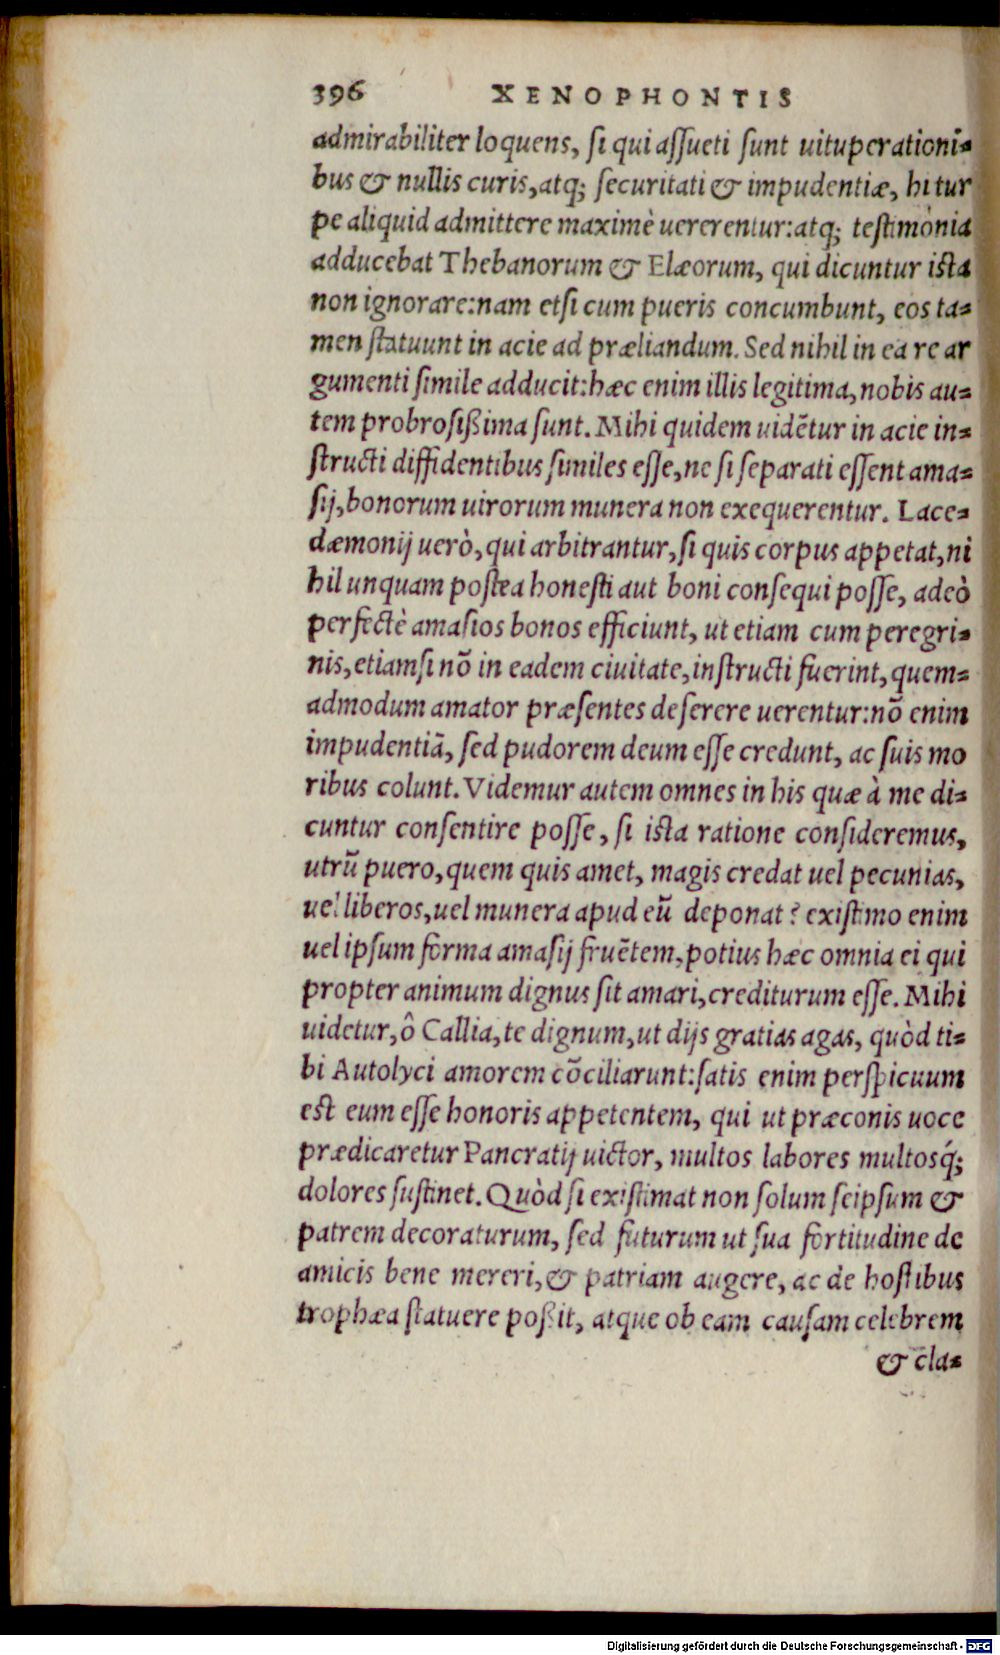 396 XENOPHONTIS
admirabiliter loquens, ſi qui aſſueti ſunt uituperationi-
bus & nullis curis, atq; ſecuritati & impudentiæ, hi tur
pe aliquid admittere maximè uererentur: atq; teſtimonia
adducebat Thebanorum & Elæorum, qui dicuntur iſta
non ignorare: nam etſi cum pueris concumbunt, eos ta-
men ſtatuunt in acie ad præliandum. Sed nihil in ea re ar
gumenti ſimile adducit: hæc enim illis legitima, nobis au-
tem probroſißima ſunt. Mihi quidem uidẽtur in acie in-
ſtructi diffidentibus ſimiles eſſe, ne ſi ſeparati eſſent ama-
ſij, bonorum uirorum munera non exequerentur. Lace-
dæmonij uerò, qui arbitrantur, ſi quis corpus appetat, ni
hil unquam poſtea honeſti aut boni conſequi poſſe, adeò
perfectè amaſios bonos efficiunt, ut etiam cum peregri-
nis, etiamſi nõ in eadem ciuitate, inſtructi fuerint, quem-
admodum amator præſentes deſerere uerentur: nõ enim
impudentiã, ſed pudorem deum eſſe credunt, ac ſuis mo
ribus colunt. Videmur autem omnes in his quæ à me di-
cuntur conſentire poſſe, ſi iſta ratione conſideremus,
utrũ puero, quem quis amet, magis credat uel pecunias,
uel liberos, uel munera apud eũ deponat? exiſtimo enim
uel ipſum forma amaſij fruẽtem, potius hæc omnia ei qui
propter animum dignus ſit amari, crediturum eſſe. Mihi
uidetur, ô Callia, te dignum, ut dijs gratias agas, quòd ti-
bi Autolyci amorem cõciliarunt: ſatis enim perſpicuum
eſt eum eſſe honoris appetentem, qui ut præconis uoce
prædicaretur Pancratij uictor, multos labores multosq́;
dolores ſuſtinet. Quòd ſi exiſtimat non ſolum ſeipſum &
patrem decoraturum, ſed futurum ut ſua fortitudine de
amicis bene mereri, & patriam augere, ac de hoſtibus
trophæa ſtatuere poßit, atque ob eam cauſam celebrem
& cla-
Digitalisierung gefördert durch die Deutsche Forschungsgemeinschaft - DFG